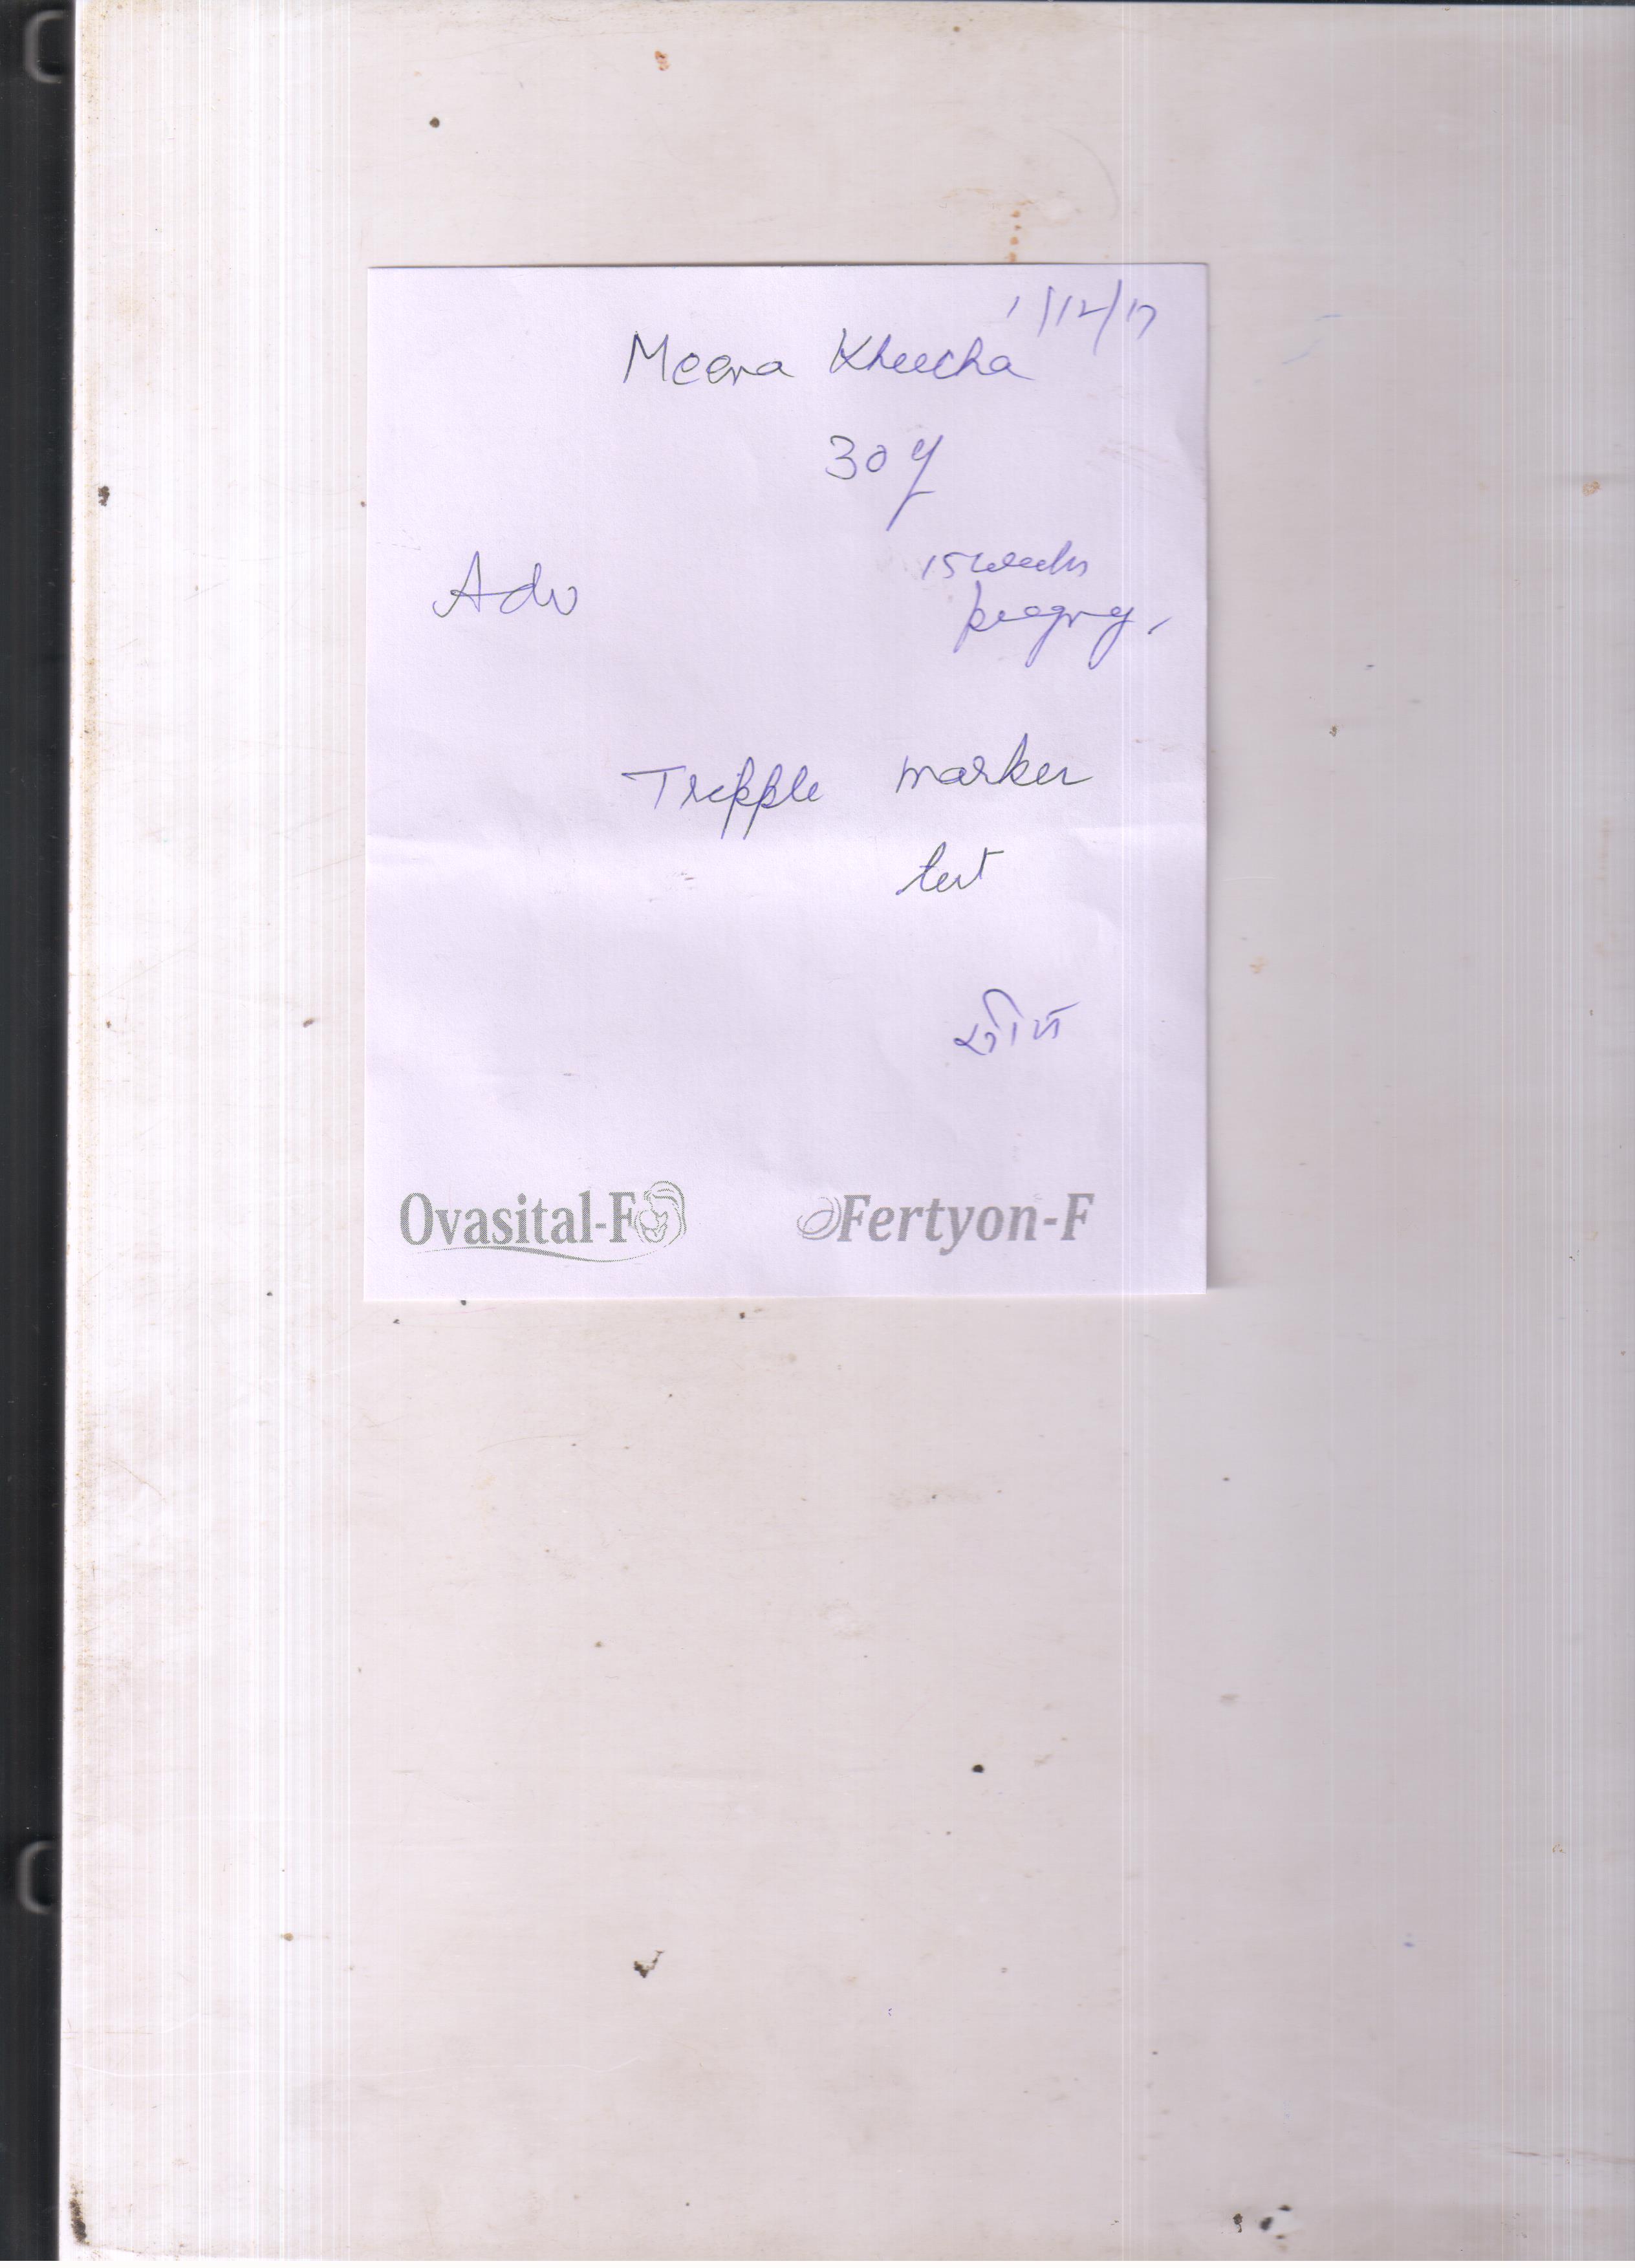 1/12/17
Meena Kheecha
30 y
Adv
15 weeks
pregny.
Tripple marker
test
Ovasital-F Fertyon-F